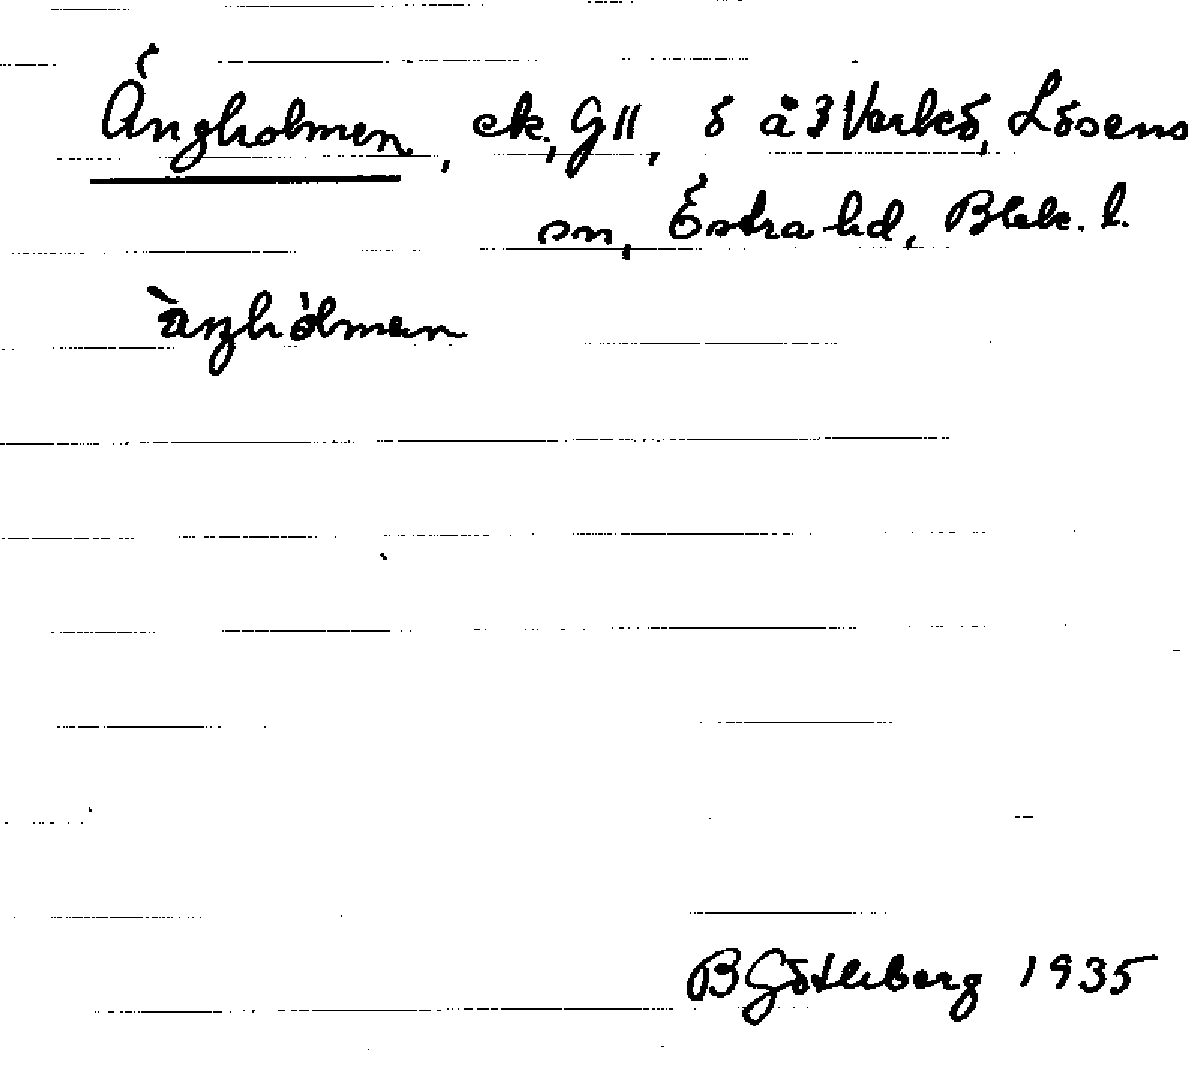 Ängholmen, ek, G11, ö å 3 Verkö, Lösens
sn, Östra hd, Blek. l.
ängholmen
B Götleberg 1935